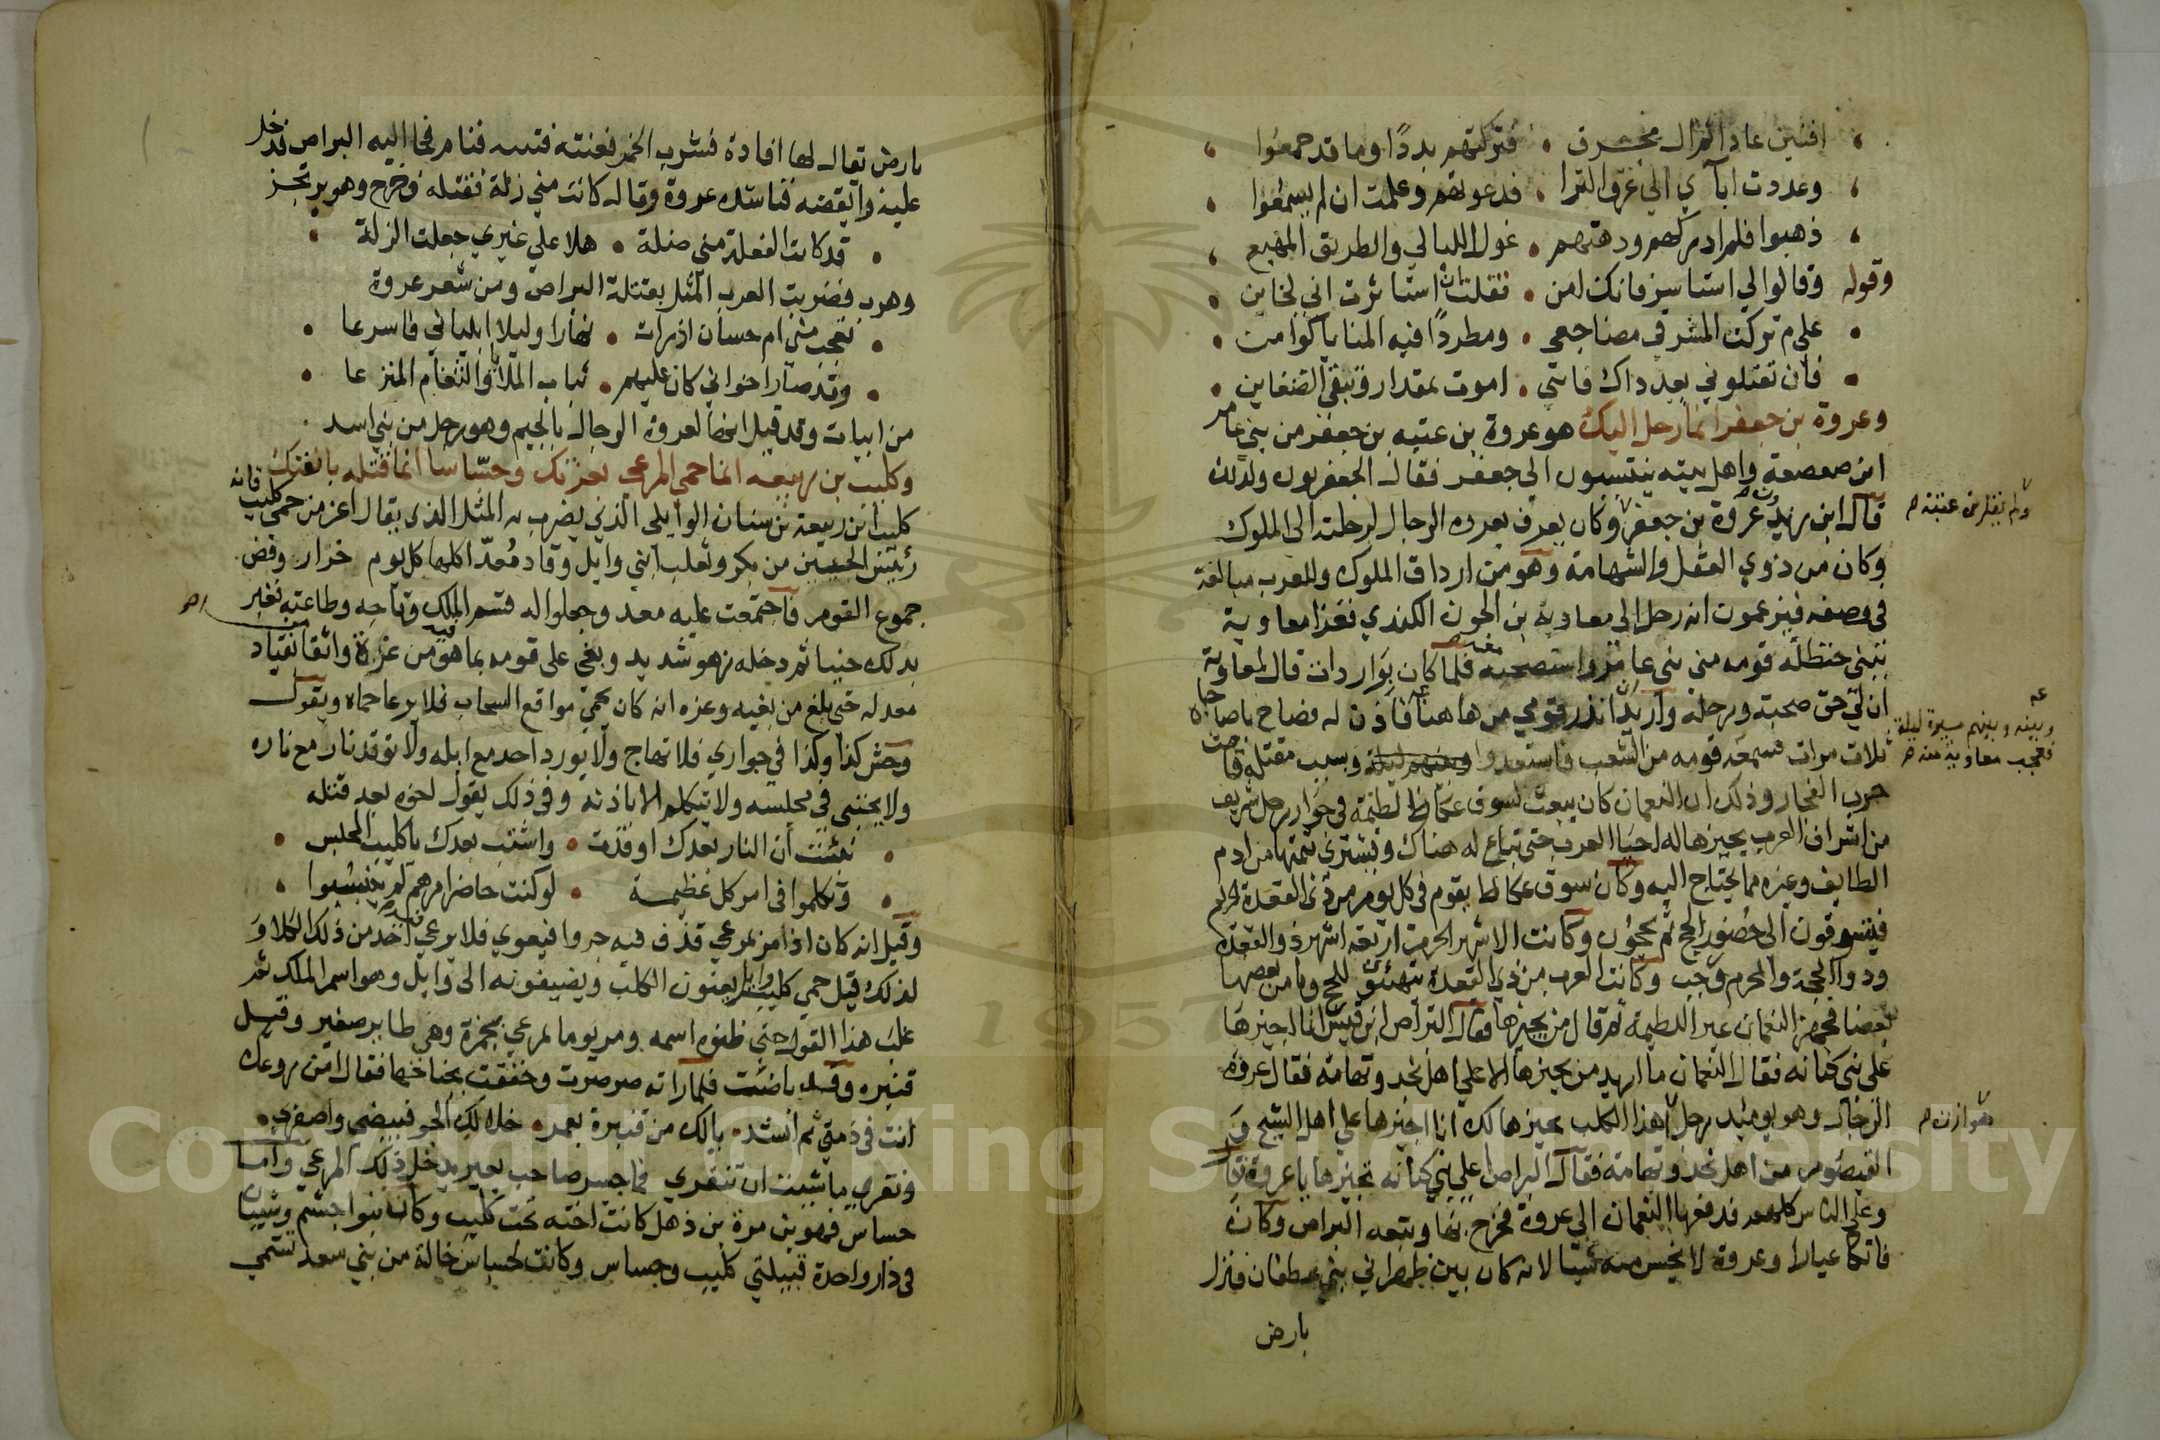 افنين عادا ثم ال محرق . فتركتهم بددا وما قد جمعوا
وعددت ابآي الى عرق الثرا . فدعوتهم وعلمت ان لم يسمعوا
ذهبوا فلم ادركهم ودهتهم . غول الليالي والطريق المهيع
وقوله وقالوا لي استاسر فانك امن . فقلت ان استاثرت اني لخاين
على م تركت المشرفي مضاجعي . ومطردا فيه المنايا كوامن
فان تقتلوني بعد داك فانني . اموت بمقدار وتبقى الضغاين
وعروة بن جعفر انما رحل اليك هو عروة بن عتبه بن جعفر من بني عامر
ابن صعصعة واهل بيته ينتسبون الى جعفر فقال الجعفريون ولذلك
قال ابن زيد عروة بن جعفر وكان يعرف بعروه الرحال لرحلته الى الملوك
ولم يقل بن عتبة صح
وكان من ذوي العقل والشهامة وهو من ارداف الملوك وللعرب مبالغة
في وصفه فيزعمون انه رحل الى معاوية بن الجون الكندي فغزا معاوية
بني حنظلة قومه من بني عامر واستصحبه فلما كان بواردات قال لمعاوية
ان لي حق صحبته ورحلة واريد انذر قومي من هاهنا فاذن له فصاح ياصباحاه
وبينه وبينهم مسيرة ليلة
فعجب معاوية منه صح
ثلاث مرات فسمعه قومه من الشعب فاستعدوا وسبب مقتله قامت
حرب الفجار وذلك ان النعمان كان يبعث لسوق عكاظ لطيمة في جوار رجل شريف
من اشراف العرب يجيزها له احيا العرب حتى تباع له هناك ويشتري بثمنها من ادم
الطايف وغيره مما يحتاج اليه وكان سوق عكاظ يقوم في كل يوم من ذي القعدة
فيتسوقون الى حضور الحج ثم يحجون وكانت الاشهر الحرم اربعه اشهر ذو القعده
وذو الحجة والمحرم ورجب وكانت العرب من ذي القعدة تتهيئ للحج ويامن بعضها
بعضا فجهز النعمان عير اللطيمة ثم قال من يجيزها فقال البراض ابن قيس انا اجيزها
على بني كنانه فقال النعمان ما اريد من يجيزها الا على اهل نجد وتهامة فقال عروة
الرحال وهو يوميد رجل اهذا الكلب يجيزها لك انا اجيزها على اهل الشيح و
هوازن صح
القيصوم من اهل نجد وتهامة فقال البراض اعلى بني كنانه تجيزها يا عروة قال
وعلى الناس كلهم فدفعها النعمان الى عروة فخرج بها وتبعه البراض وكان
فاتكا عيارا وعروة لا يخش منه شيا لانه كان بين ظهراني بني غطفان فنزل
بارض
بارض يقال لها اوارة فشرب الخمر فغنته قينته فنام فجا اليه البراض فدخل
عليه وايقضه فناشده عروة وقال كانت مني زلة فقتله وخرج وهو يرتجز
قد كانت الفعلة مني ضلة . هلا على غيري جعلت الزلة
وهرب فضربت العرب المثل بفتكة البراض ومن شعر عروة
تعجب مني ام حسان اذ رات . نهارا وليلا ابلياني فاسرعا
وقد صار اخواني كان عليهم . ثياب الملا والثغام المنزعا
من ابيات وقد قيل انها لعروة الرجال بالجيم وهو رجل من بني اسد
وكليب بن ربيعه انما حمي المرعى بعزتك وجساسا انما قتله بانفتك فانه
كليب ابن ربيعة بن سنان الوايلي الذي يضرب به المثل الذي يقال اعز من حمى كليب
رئيس الحيين من بكر وتغلب ابني وايل وقاد معدا كلها كل يوم خزار وفض
جموع القوم فاجتمعت عليه معد وجعلوا له قسم الملك وتاجه وطاعته فغبر
بذلك حينا ثم دخله زهو شديد وبغى على قومه بما هو فيه من عزة واثقا بانقياد
معد له حتى بلغ من بغيه وعزه انه كان يحمي مواقع السحاب فلا يرعا حماه ويقول
وحش كذا وكذا في جواري فلا تهاج ولا يورد احد مع ابله ولا توقد نار مع ناره
ولا يحتبي في مجلسه ولا يتكلم الا باذنه وفي ذلك يقول لخوه بعد قتله
نبئت أن النار بعدك اوقدت . واستب بعدك ياكليب المجلس
وتكلموا في امر كل عظيمة . لو كنت حاضر امرهم لم ينبسوا
وقيل انه كان اذا مر بمرعي قذف فيه جروا فيعوي فلا يرعي احد من ذلك الكلا و
لذلك قيل حمي كليب وايل يعنون الكلب ويضيفونه الى وايل وهو اسم الملك ثم
غلب هذا القول حتى ظنوه اسمه ومر يوما بمرعي بحمرة وهي طاير صغير وقيل
قنبره وقد باضت فلما راته صرصرت وخفقت بجناحها فقال امن روعك
انت في ذمتي ثم انشد . يالك من قنبرة بمعمر . خلا لك الجو فبيضي واصفري .
ونقري ما شيت ان تنقري فما جسر صاحب بعير يدخل ذلك المرعي واما
جساس فهو بن مرة بن ذهل كانت اخته تحت كليب وكان بنوا جشم وشيبان
في دار واحدة قبيلتي كليب وجساس وكانت لجساس خالة من بني سعد تسمي
Copyright © King Saud University
1957